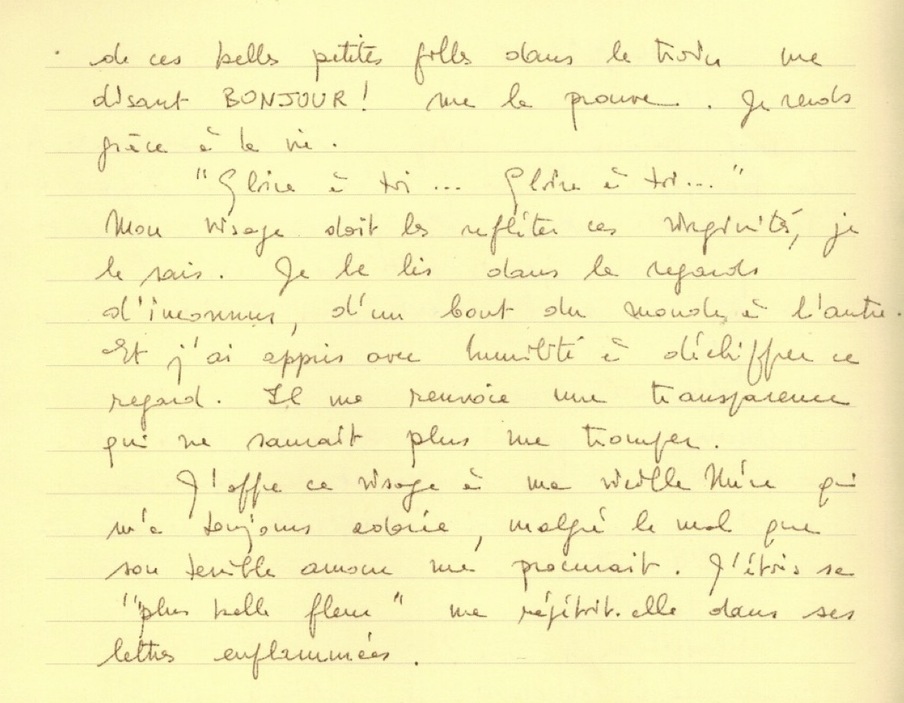 de ces belles petites filles dans le train me
disant BONJOUR ! me le prouve. Je rends
grâce à la vie.
"Gloire à toi... Gloire à toi..."
Mon visage doit les refléter ces virginités, je
le sais. Je le lis dans le regards
d'inconnus, d'un bout du monde à l'autre.
Et j'ai appris avec humilité à déchiffrer ce
regard. Il me renvoie une transparence
qui ne saurait plus me tromper.
J'offre ce visage à ma vieille Mère qui
m'a toujours adorée, malgré le mal que
son terrible amour me procurait. J'étais sa
"plus belle fleur" me répétait-elle dans ses
lettres enflammées.